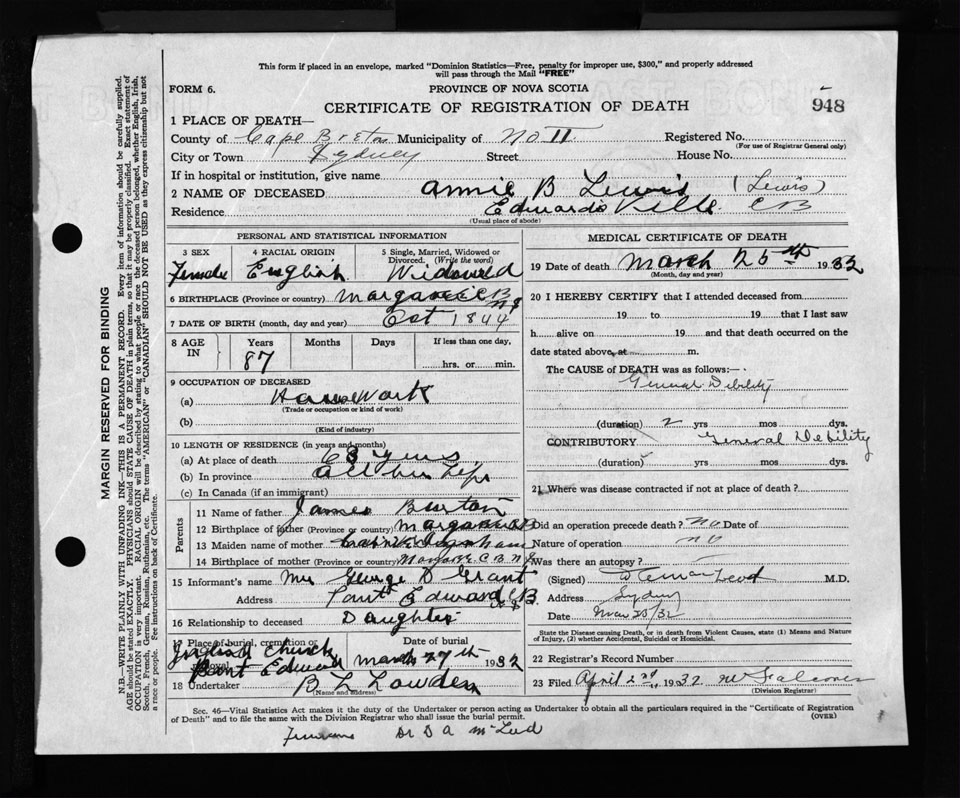 This form if placed in an envelope, marked "Dominion Statistics—Free, penalty for improper use, $300," and properly addressed
will pass through the Mail "FREE"
FORM 6.
PROVINCE OF NOVA SCOTIA
CERTIFICATE OF REGISTRATION OF DEATH
948
1 PLACE OF DEATH—
County of Cape Breton Municipality of No 11 Registered No.
(For use of Registrar General only)
City or Town Sydney Street House No.
If in hospital or institution, give name
2 NAME OF DECEASED Annie B Lewis (Lewis)
Residence Edwardsville C B
(Usual place of abode)
PERSONAL AND STATISTICAL INFORMATION
3 SEX 4 RACIAL ORIGIN 5 Single, Married, Widowed or
Divorced. (Write the word)
Female English Widowed
6 BIRTHPLACE (Province or country) Margaree C B
N S
7 DATE OF BIRTH (month, day and year) Oct 1844
8 AGE IN Years Months Days If less than one day,
87 hrs. or min.
9 OCCUPATION OF DECEASED
(a) House Work
(Trade or occupation or kind of work)
(b)
(Kind of industry)
10 LENGTH OF RESIDENCE (in years and months)
(a) At place of death 63 Years
(b) In province All her Life
(c) In Canada (if an immigrant)
Parents
11 Name of father James Burton
12 Birthplace of father (Province or country) Margaree C B
13 Maiden name of mother
14 Birthplace of mother (Province or country) Margaree C. B. N S
15 Informant's name Mrs George D Grant
Address Point Edward C B
N S
16 Relationship to deceased Daughter
17 Place of burial, cremation or Date of burial
Church
Point Edward March 27th 1932
18 Undertaker B L Lowden
(Name and address)
MEDICAL CERTIFICATE OF DEATH
19 Date of death March 25th 1932
(Month, day and year)
20 I HEREBY CERTIFY that I attended deceased from
19 to 19 that I last saw
h alive on 19 and that death occurred on
date stated above, at m.
The CAUSE of DEATH was as follows:—
General Debility
(duration) 2 yrs mos dys.
CONTRIBUTORY General Debility
(duration) yrs mos dys.
21 Where was disease contracted if not at place of death?
Did an operation precede death? No Date of
Nature of operation no
Was there an autopsy?
(Signed) M.D.
Address Sydney
Date Mar 25/32
State the Disease causing Death, or in death from Violent Causes, state (1) Means and Nature
of Injury, (2) whether Accidental, Suicidal or Homicidal.
22 Registrar's Record Number
23 Filed April 2nd 1932
(Division Registrar)
Sec. 46—Vital Statistics Act makes it the duty of the Undertaker or person acting as Undertaker to obtain all the particulars required in the "Certificate of Registration
of Death" and to file the same with the Division Registrar who shall issue the burial permit. (OVER)
Dr D A McLeod
MARGIN RESERVED FOR BINDING
N.B.—WRITE PLAINLY WITH UNFADING INK—THIS IS A PERMANENT RECORD. Every item of information should be carefully supplied.
AGE should be stated EXACTLY. PHYSICIANS should STATE CAUSE OF DEATH in plain terms, so that it may be properly classified. Exact statement of
OCCUPATION is very important. RACIAL ORIGIN will be described by stating to what people or race the deceased person belonged, whether English, Irish,
Scotch, French, German, Russian, Ruthenian, etc. The terms "AMERICAN" or "CANADIAN" SHOULD NOT BE USED as they express citizenship but not
a race or people. See instructions on back of Certificate.